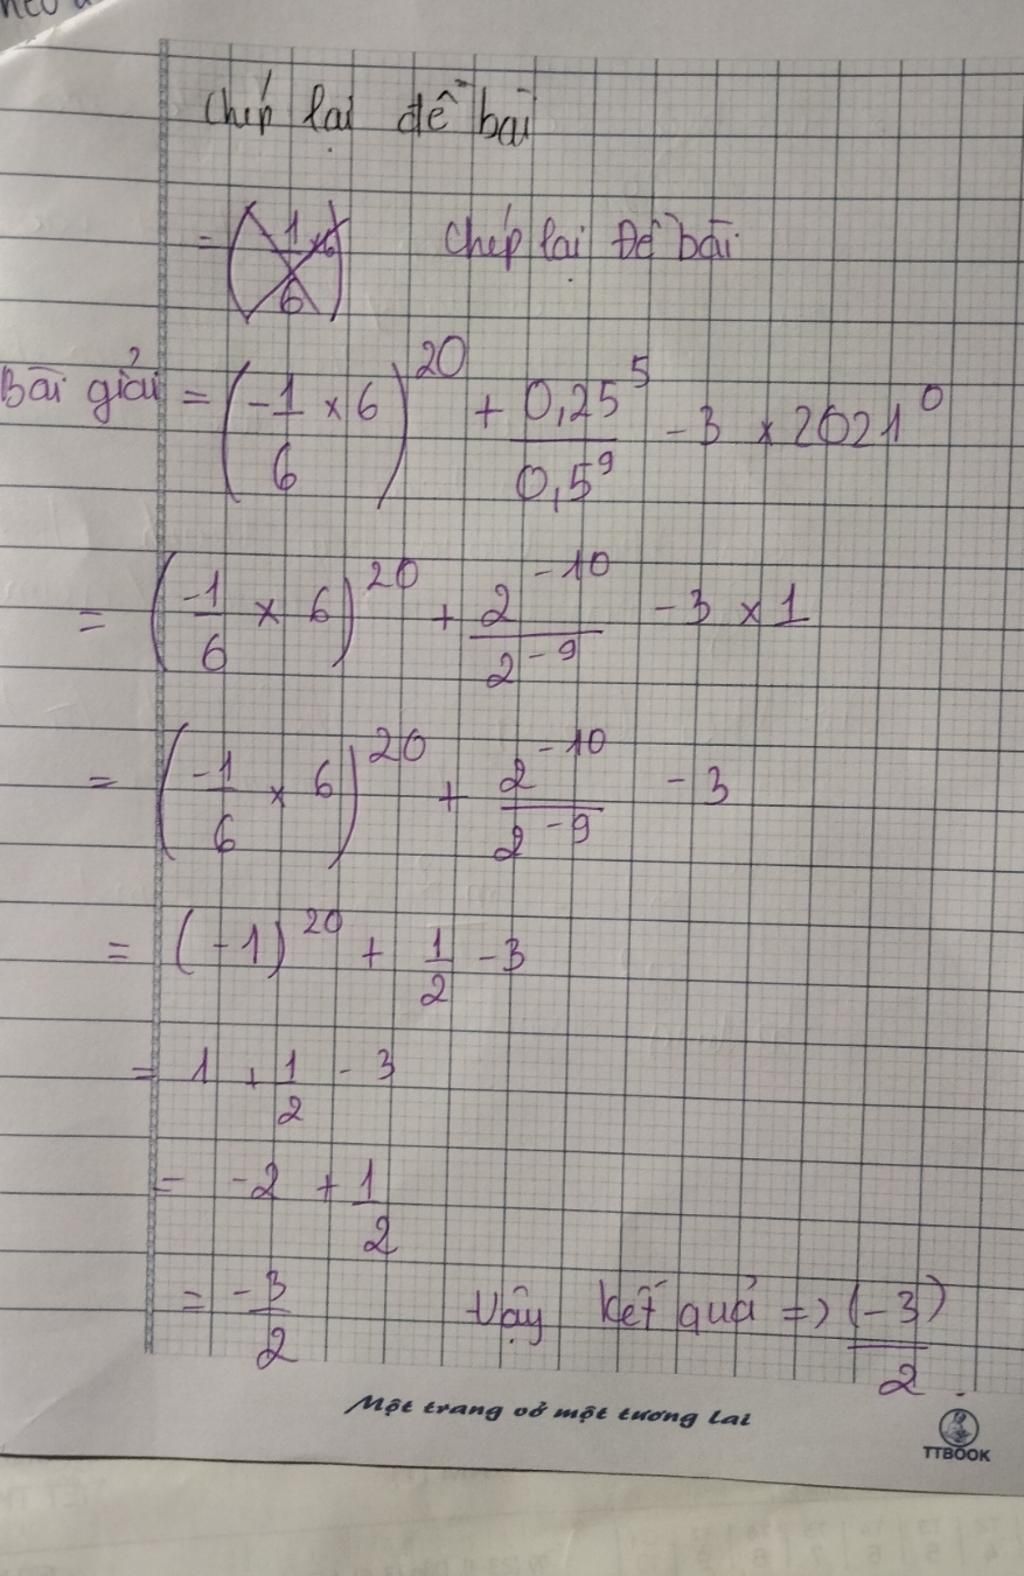 Chép lại đề bài
= (1/6 x 6) Chép lại Đề bài
Bài giải = (-1/6 x 6)^20 + 0,25^5/0,5^9 - 3 x 2021^0
= (-1/6 x 6)^20 + 2^-10/2^-9 - 3 x 1
= (-1/6 x 6)^20 + 2^-10/2^-9 - 3
= (-1)^20 + 1/2 - 3
= 1 + 1/2 - 3
= -2 + 1/2
= -3/2 Vậy kết quả => (-3)/2.
Một trang vở một tương lai
TTBOOK